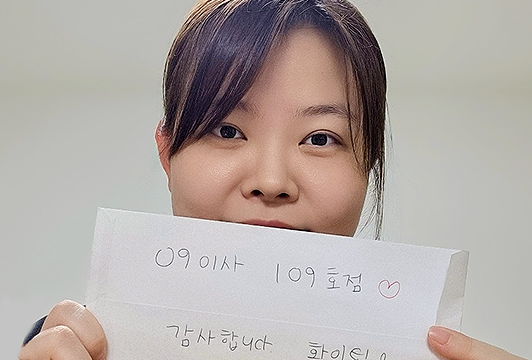 09이사 109호점 ♡
감사합니다 화이팅